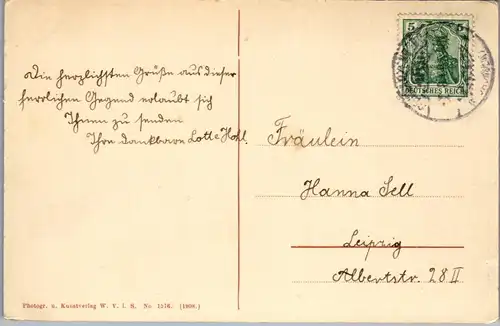 Die herzlichsten Grüße aus dieser
herrlichen Gegend erlaubt sich
Ihnen zu senden
Ihre dankbare Lotte Hohl.
5 5
DEUTSCHES REICH
Fräulein
Hanna Sell
Leipzig
Albertstr. 28 II
Photogr. u. Kunstverlag W. V. i. S. No. 1576. (1908.)